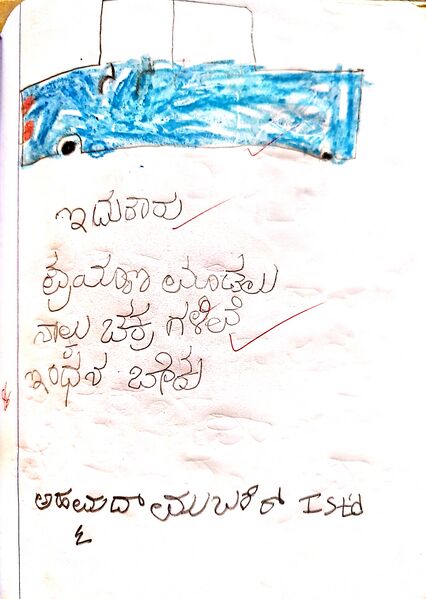 ಇದುಕಾರು
ಪ್ರಯಾಣ ಮಾಡಲು
ನಾಲ್ಕು ಚಕ್ರ ಗಳಿವೆ
ಇಂಧನ ಬೇಕು
ಅಹ್ಮದ್ ಮುಬಶಿರ್ Istd